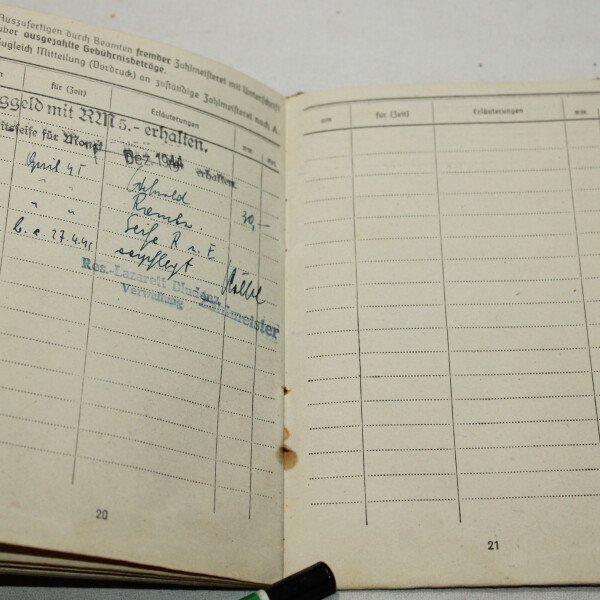 Auszufertigen durch Beamten fremder Zahlmeisterei mit Unterschrift
über ausgezahlte Gebührnisbeträge.
zugleich Mitteilung (Vordruck) an zuständige Zahlmeisterei nach A.
für (Zeit) Erläuterungen RM Rpf.
ggeld mit RM 5.- erhalten.
itsseife für Monat Dez. 1944 erhalten.
April 45 Wehrsold 30,-
" "
" " Seife R u. E.
b. a. 27.4.45 verpflegt
Res.-Lazarett Bludenz
Verwaltung Zahlmeister
20
RM für (Zeit) Erläuterungen RM
21